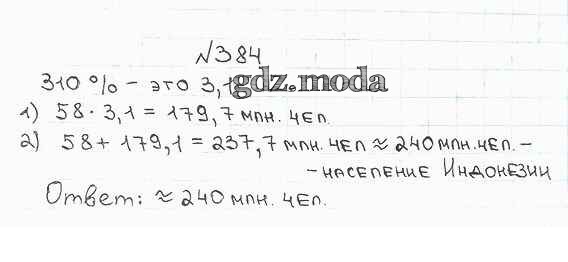 №384
310 % – это 3,1 gdz.moda
1) 58 · 3,1 = 179,7 млн. чел.
2) 58 + 179,1 = 237,7 млн. чел ≈ 240 млн. чел. –
– население Индонезии
Ответ: ≈ 240 млн. чел.